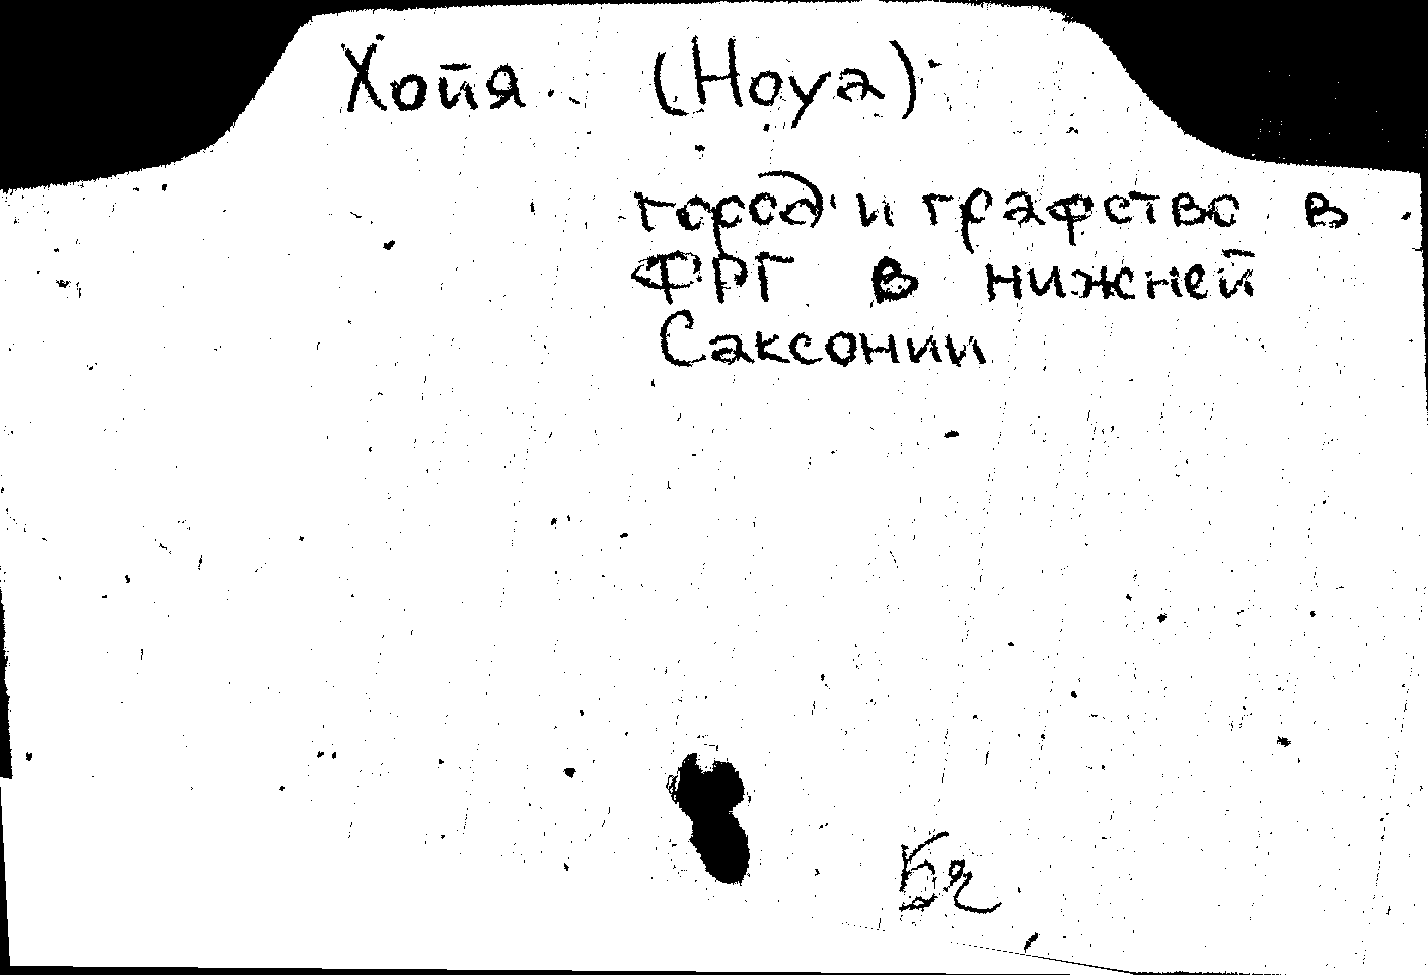 Хойя (Hoya)
город и графство в
ФРГ в нижней
Саксонии